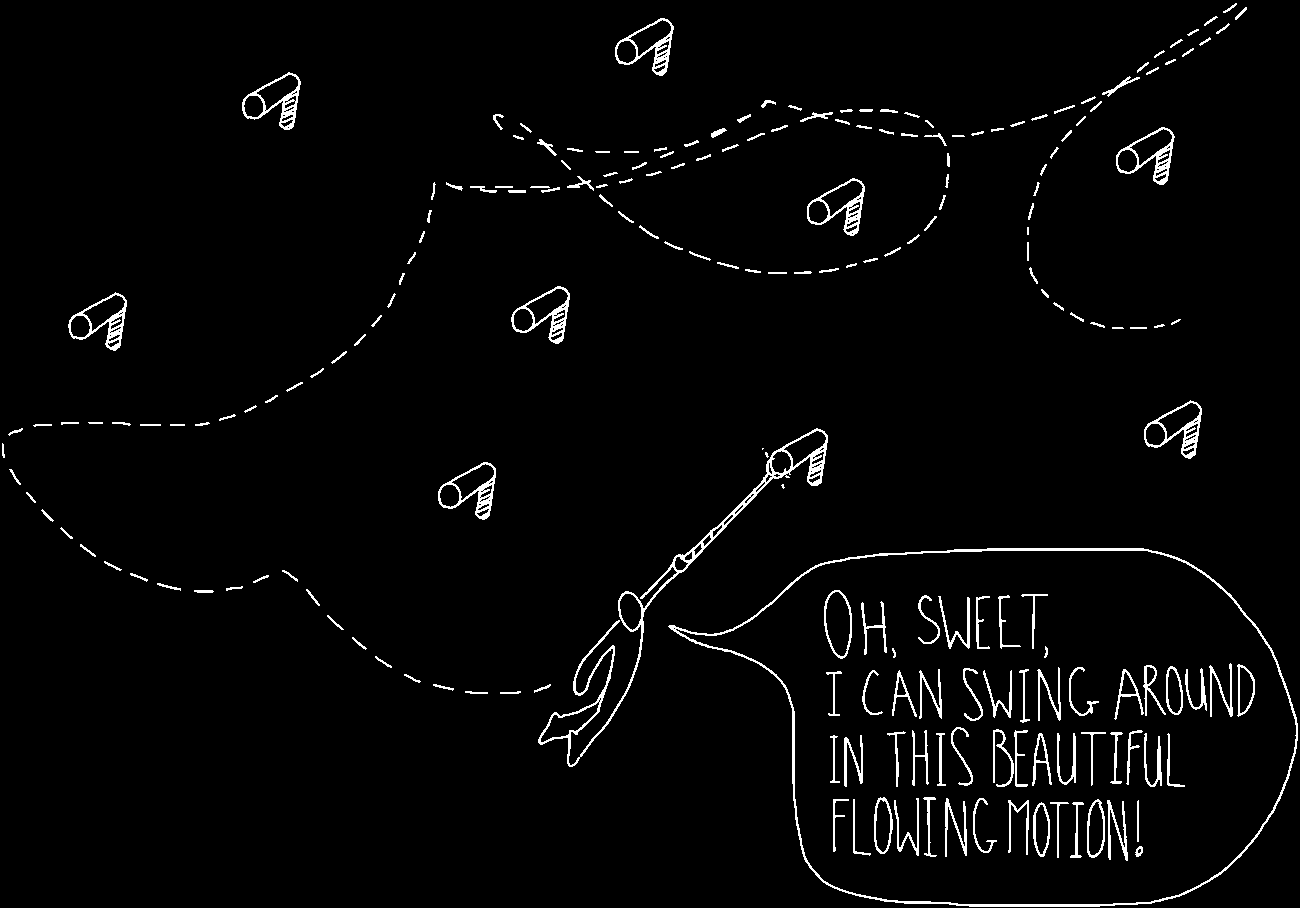 OH, SWEET,
I CAN SWING AROUND
IN THIS BEAUTIFUL
FLOWING MOTION!